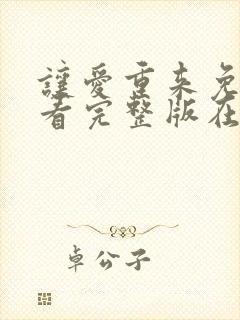 讓愛重来免
看完整版在
卓公子